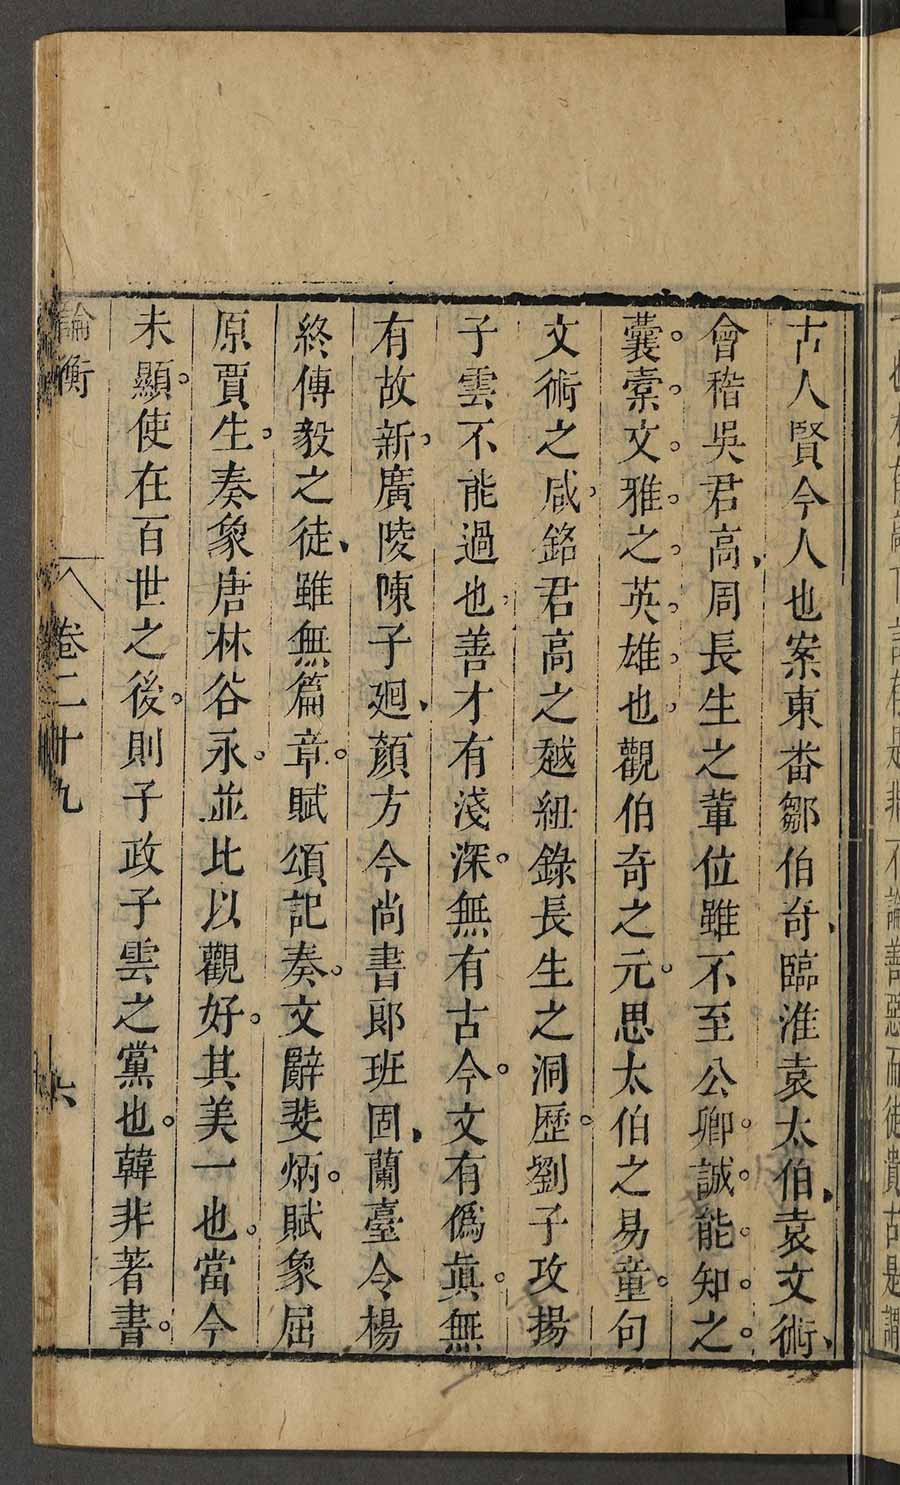 古人賢今人也案東番鄒伯奇臨淮袁太伯袁文術
會稽吳君高周長生之輩位雖不至公卿誠能知之
囊橐文雅之英雄也觀伯奇之元思太伯之易童句
文術之咸銘君高之越紐錄長生之洞歷劉子攻揚
子雲不能過也善才有淺深無有古今文有僞眞無
有故新廣陵陳子廻顏方今尚書郎班固蘭臺令楊
終傅毅之徒雖無篇章賦頌記奏文辭斐炳賦象屈
原賈生奏象唐林谷永並比以觀好其美一也當今
未顯使在百世之後則子政子雲之黨也韓非著書
論衡 卷二十九 六